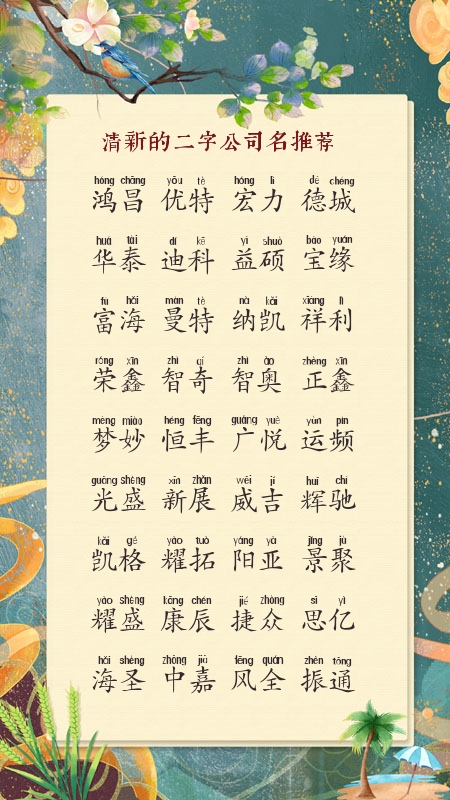 清新的二字公司名推荐
hóng chāng yōu tè hóng lì dé chéng
鸿昌 优特 宏力 德城
huá tài dí kē yì shuò bǎo yuán
华泰 迪科 益硕 宝缘
fù hǎi màn tè nà kǎi xiáng lì
富海 曼特 纳凯 祥利
róng xīn zhì qí zhì ào zhèng xīn
荣鑫 智奇 智奥 正鑫
mèng miào héng fēng guǎng yuè yùn pín
梦妙 恒丰 广悦 运频
guāng shèng xīn zhǎn wēi jí huī chí
光盛 新展 威吉 辉驰
kǎi gé yào tuò yáng yà jǐng jù
凯格 耀拓 阳亚 景聚
yào shèng kāng chén jié zhòng sī yì
耀盛 康辰 捷众 思亿
hǎi shèng zhōng jiā fēng quán zhèn tōng
海圣 中嘉 风全 振通